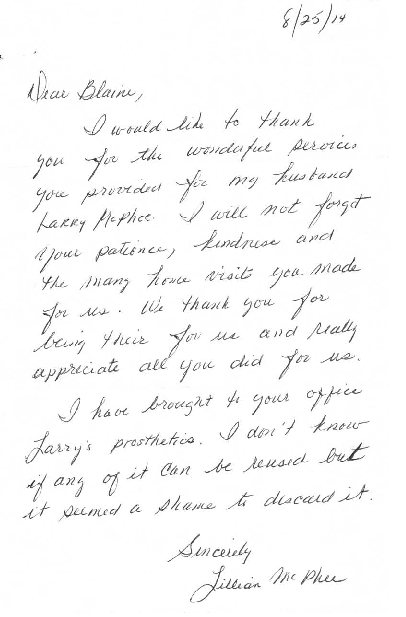 8/25/14
Dear Blaine,
I would like to thank
you for the wonderful services
you provided for my husband
Larry McPhee. I will not forget
your patience, kindness and
the many home visits you made
for us. We thank you for
being their for us and really
appreciate all you did for us.
I have brought to your office
Larry's prosthetics. I don't know
if any of it can be reused but
it seemed a shame to discard it.
Sincerely
Lillian McPhee